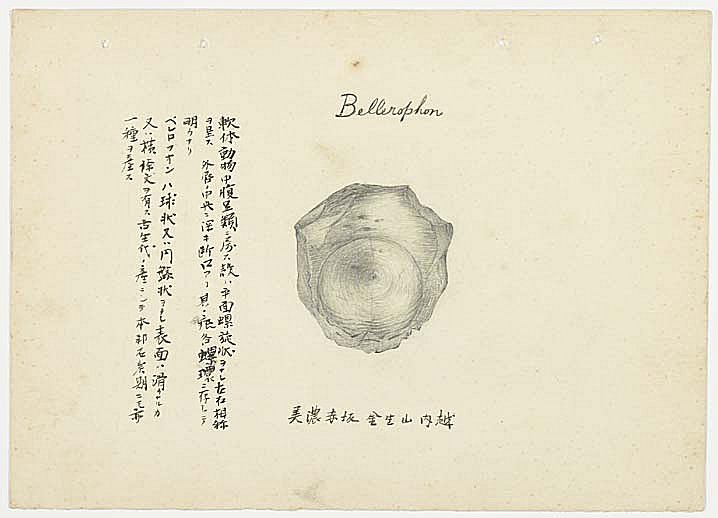 Bellerophon
軟体動物中腹足類ニ属ス殻ハ平面螺旋状ヲナシ左右相称
ヲ呈ス 外唇ノ中央ニ深キ断口アリ其ノ痕各螺環ニ存シテ
明ラナリ
ベレロフオンハ球状又ハ円盤状ヲナシ表面ハ滑ナルカ
又ハ横條文ヲ有ス古生代ノ産ニシテ本邦石炭期ニモ亦
一種ヲ産ス
美濃赤坂金生山内越